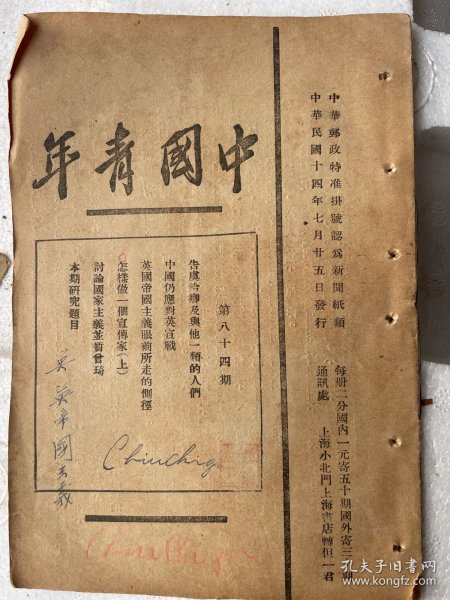 中華郵政特准掛號認爲新聞紙類
中華民國十四年七月廿五日發行
每册二分國內一元寄五十期國外寄三
通訊處 上海小北門上海書店轉但一君
中國青年
第八十四期
告虞洽卿及與他一類的人們
中國仍應對英宣戰
英國帝國主義眼前所走的側徑
怎樣做一個宣傳家(上)
討論國家主義並質曾琦
本期研究題目
英帝國主義
孔夫子旧书网
kongfz.com